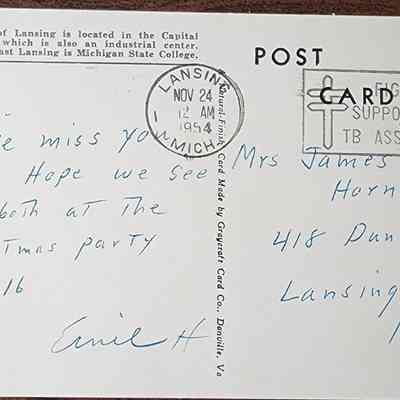 of Lansing is located in the Capital
which is also an industrial center.
ast Lansing is Michigan State College.
POST
CARD
LANSING
NOV 24
12 AM
1954
MICH.
FIG
SUPPO
TB ASS
Natural-Finish Card Made by Graycraft Card Co., Danville, Va
e miss you
Hope we see
both at the
tmas party
16
Emil H
Mrs James
Horn
418 Dun
Lansing